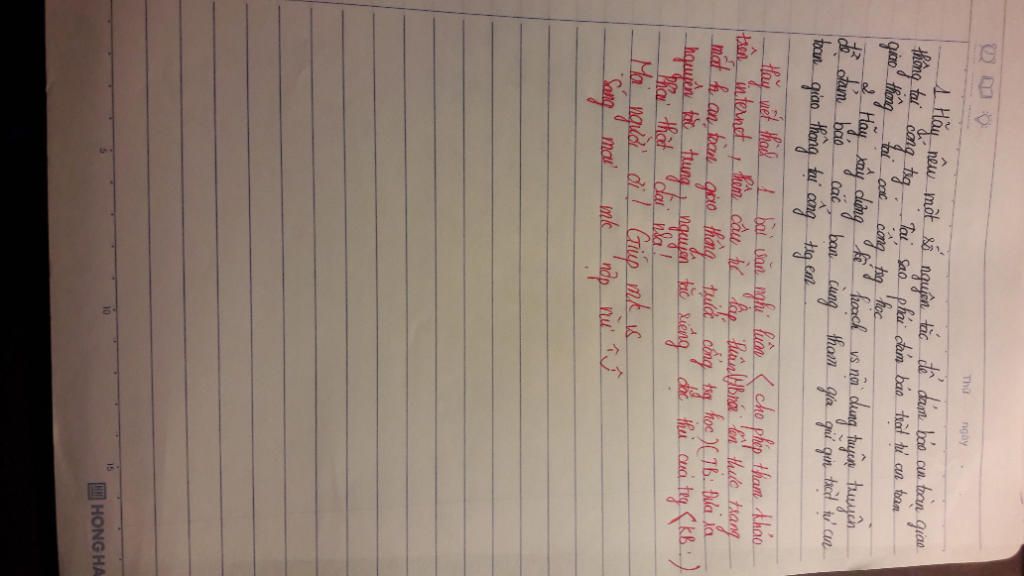 Thứ ngày
1. Hãy nêu một số nguyên tắc để đảm bảo an toàn giao
thông tại cổng trg. Tại sao phải đảm bảo trật tự an toàn
giao thông tại các cổng trg học
2. Hãy xây dựng kế hoạch vs nội dung tuyên truyền
để đảm bảo các bạn cùng tham gia giữ gìn trật tự an
toàn giao thông tại cổng trg em
Hãy viết thành 1 bài văn nghị luận (cho phép tham khảo
trên internet, thêm câu từ lập luận (MB: nói lên thực trạng
mất k an toàn giao thông trước cổng trg học) (TB: Đưa ra
nguyên tắc trung, nguyên tắc riêng đặc thù của trg (KB:.)
Phải thật dài nha!
Mọi người ơi! Giúp mk vs
Sáng mai mk nộp rùi
5
10
15
HONG HA